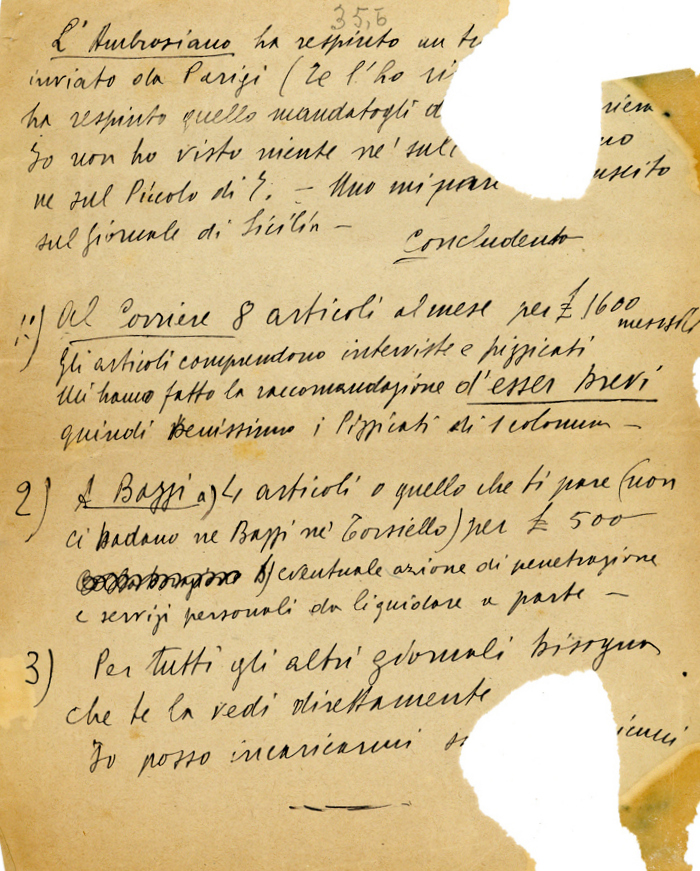 35,6
L'Ambrosiano ha respinto un
inviato da Parigi (Te l'ho
ha respinto quello mandatogli
Io non ho visto niente ne' sull'
ne sul Piccolo di T. – Uno mi pare uscito
sul Giornale di Sicilia –
Concludento
1) Al Corriere 8 articoli al mese per £ 1600
mensili
gli articoli comprendono interviste e pizzicati
Mi hanno fatto la raccomandazione d'esser brevi
quindi benissimo i Pizzicati di 1 colonna –
2) A Bazzi a) 4 articoli o quello che ti pare (non
ci badano ne Bazzi ne' Torsiello) per £ 500
b) eventuale azione di penetrazione
e servizi personali da liquidare a parte –
3) Per tutti gli altri giornali bisogna
che te la vedi direttamente
Io posso incaricarmi